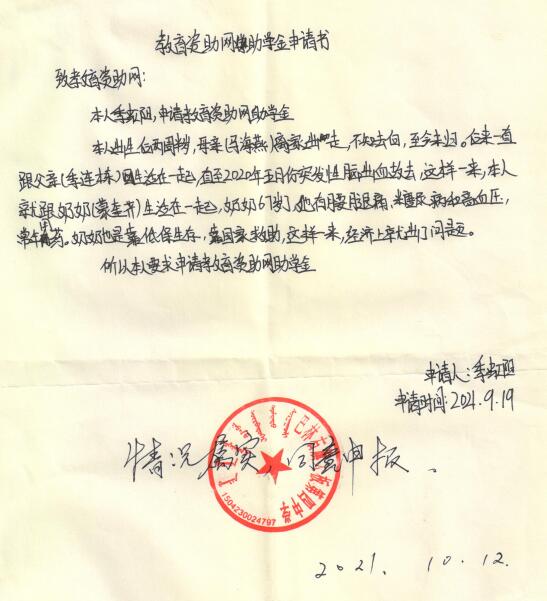 教育资助网助学金申请书
致教育资助网:
本人季虹阳,申请教育资助网助学金
本人出生后两周半,母亲(马海燕)离家出走,不知去向,至今未归。后来一直
跟父亲(季连栋)生活在一起,直至2020年5月份突发性脑出血故去,这样一来,本人
就跟奶奶()生活在一起,奶奶67岁,她有腰腿疼,糖尿病和高血压,
常年药。奶奶也是靠低保生存,靠国家救助,这样一来,经济上就出了问题。
所以本人要求申请教育资助网助学金
申请人:季虹阳
申请时间:2021.9.19
巴林左旗林东第四中学
情况属实,同意申报、
1504230024797
2021. 10. 12.